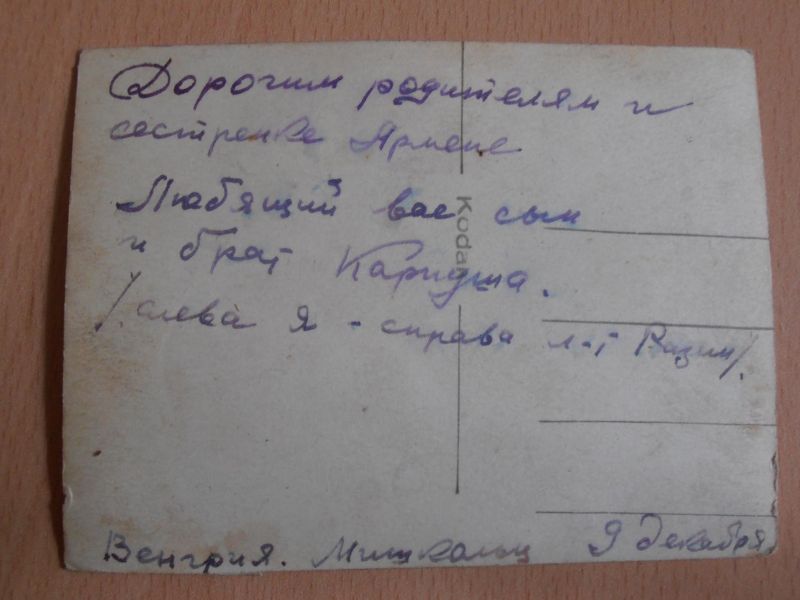 Дорогим родителям и
сестренке Армене
Любящий вас сын
и брат Каридша.
/слева я - справа л-т Визит/.
Kodak
Венгрия. Мишкольц 9 декабря